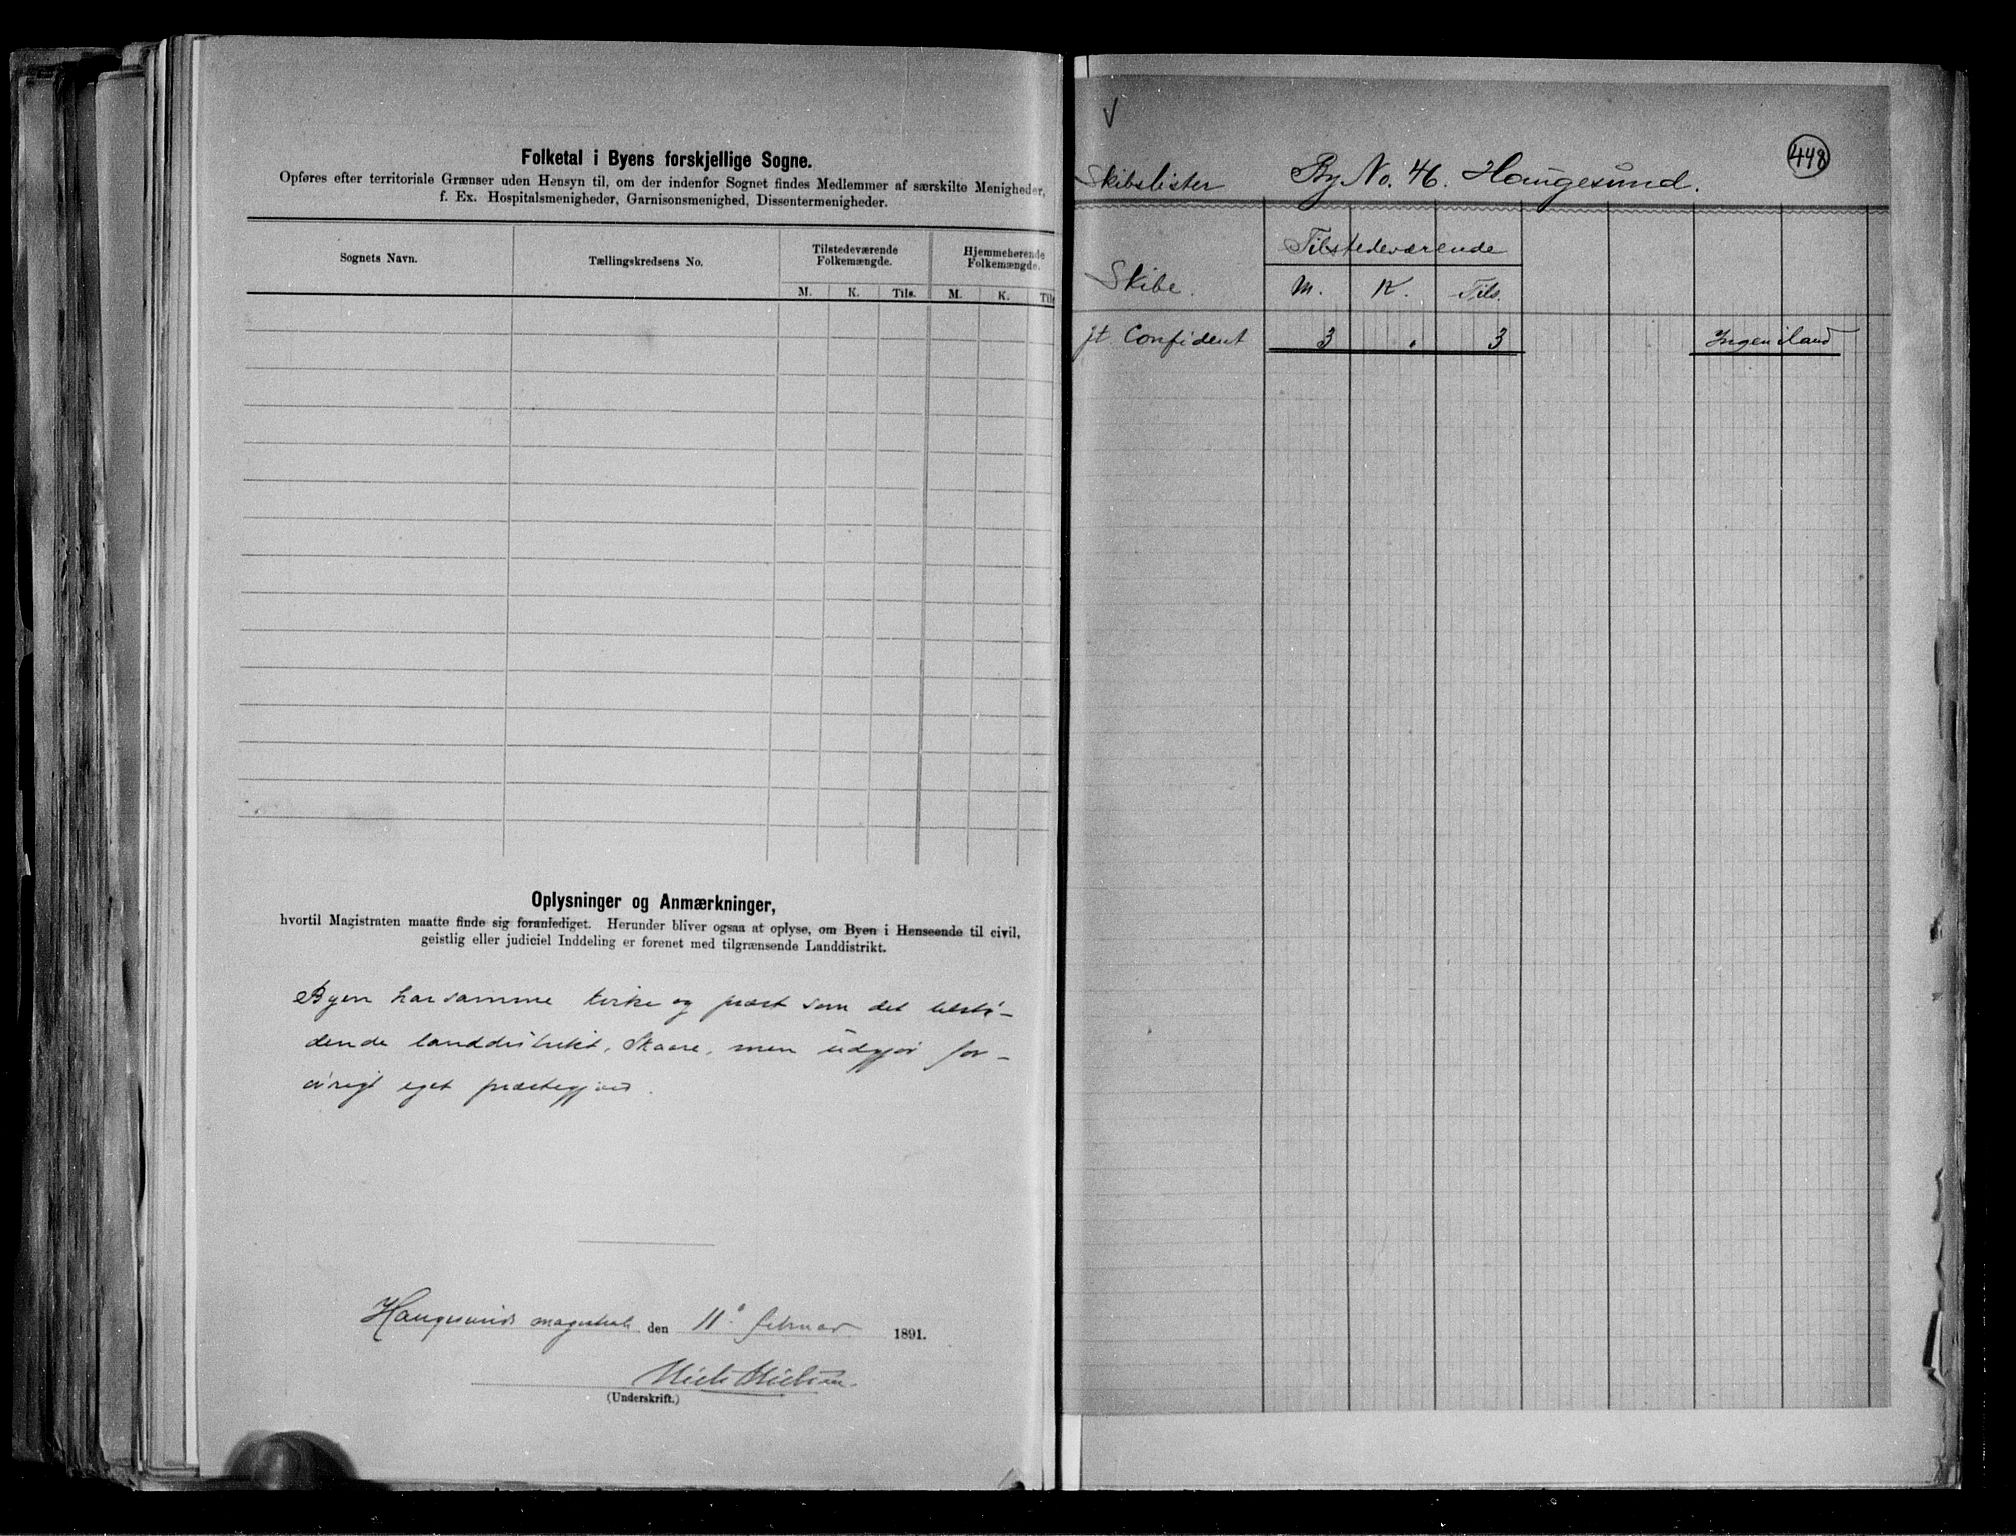 Folketal i Byens forskjellige Sogne.
Opføres efter territoriale Grænser uden Hensyn til, om der indenfor Sognet findes Medlemmer af særskilte Menigheder,
f. Ex. Hospitalsmenigheder, Garnisonsmenighed, Dissentermenigheder.
Sognets Navn. Tællingskredsens No. Tilstedeværende Folkemængde. Hjemmehørende Folkemængde.
M. K. Tils. M. K. Tils
Oplysninger og Anmærkninger,
hvortil Magistraten maatte finde sig foranlediget. Herunder bliver ogsaa at oplyse, om Byen i Henseende til civil,
geistlig eller judiciel Inddeling er forenet med tilgrænsende Landdistrikt.
Byen har samme kirke og præst som det tilstø-
dende landdistrikt, Skaare, men udgjør for-
øvrigt eget præstegjæld.
Haugesunds magistrat den 11' februar 1891.
Niels Nielsen
(Underskrift.)
448
Skibslister By No. 46. Haugesund.
Tilstedeværende
Skibe. M. K. Tils.
Jt. Confident 3 " 3 Ingen iland